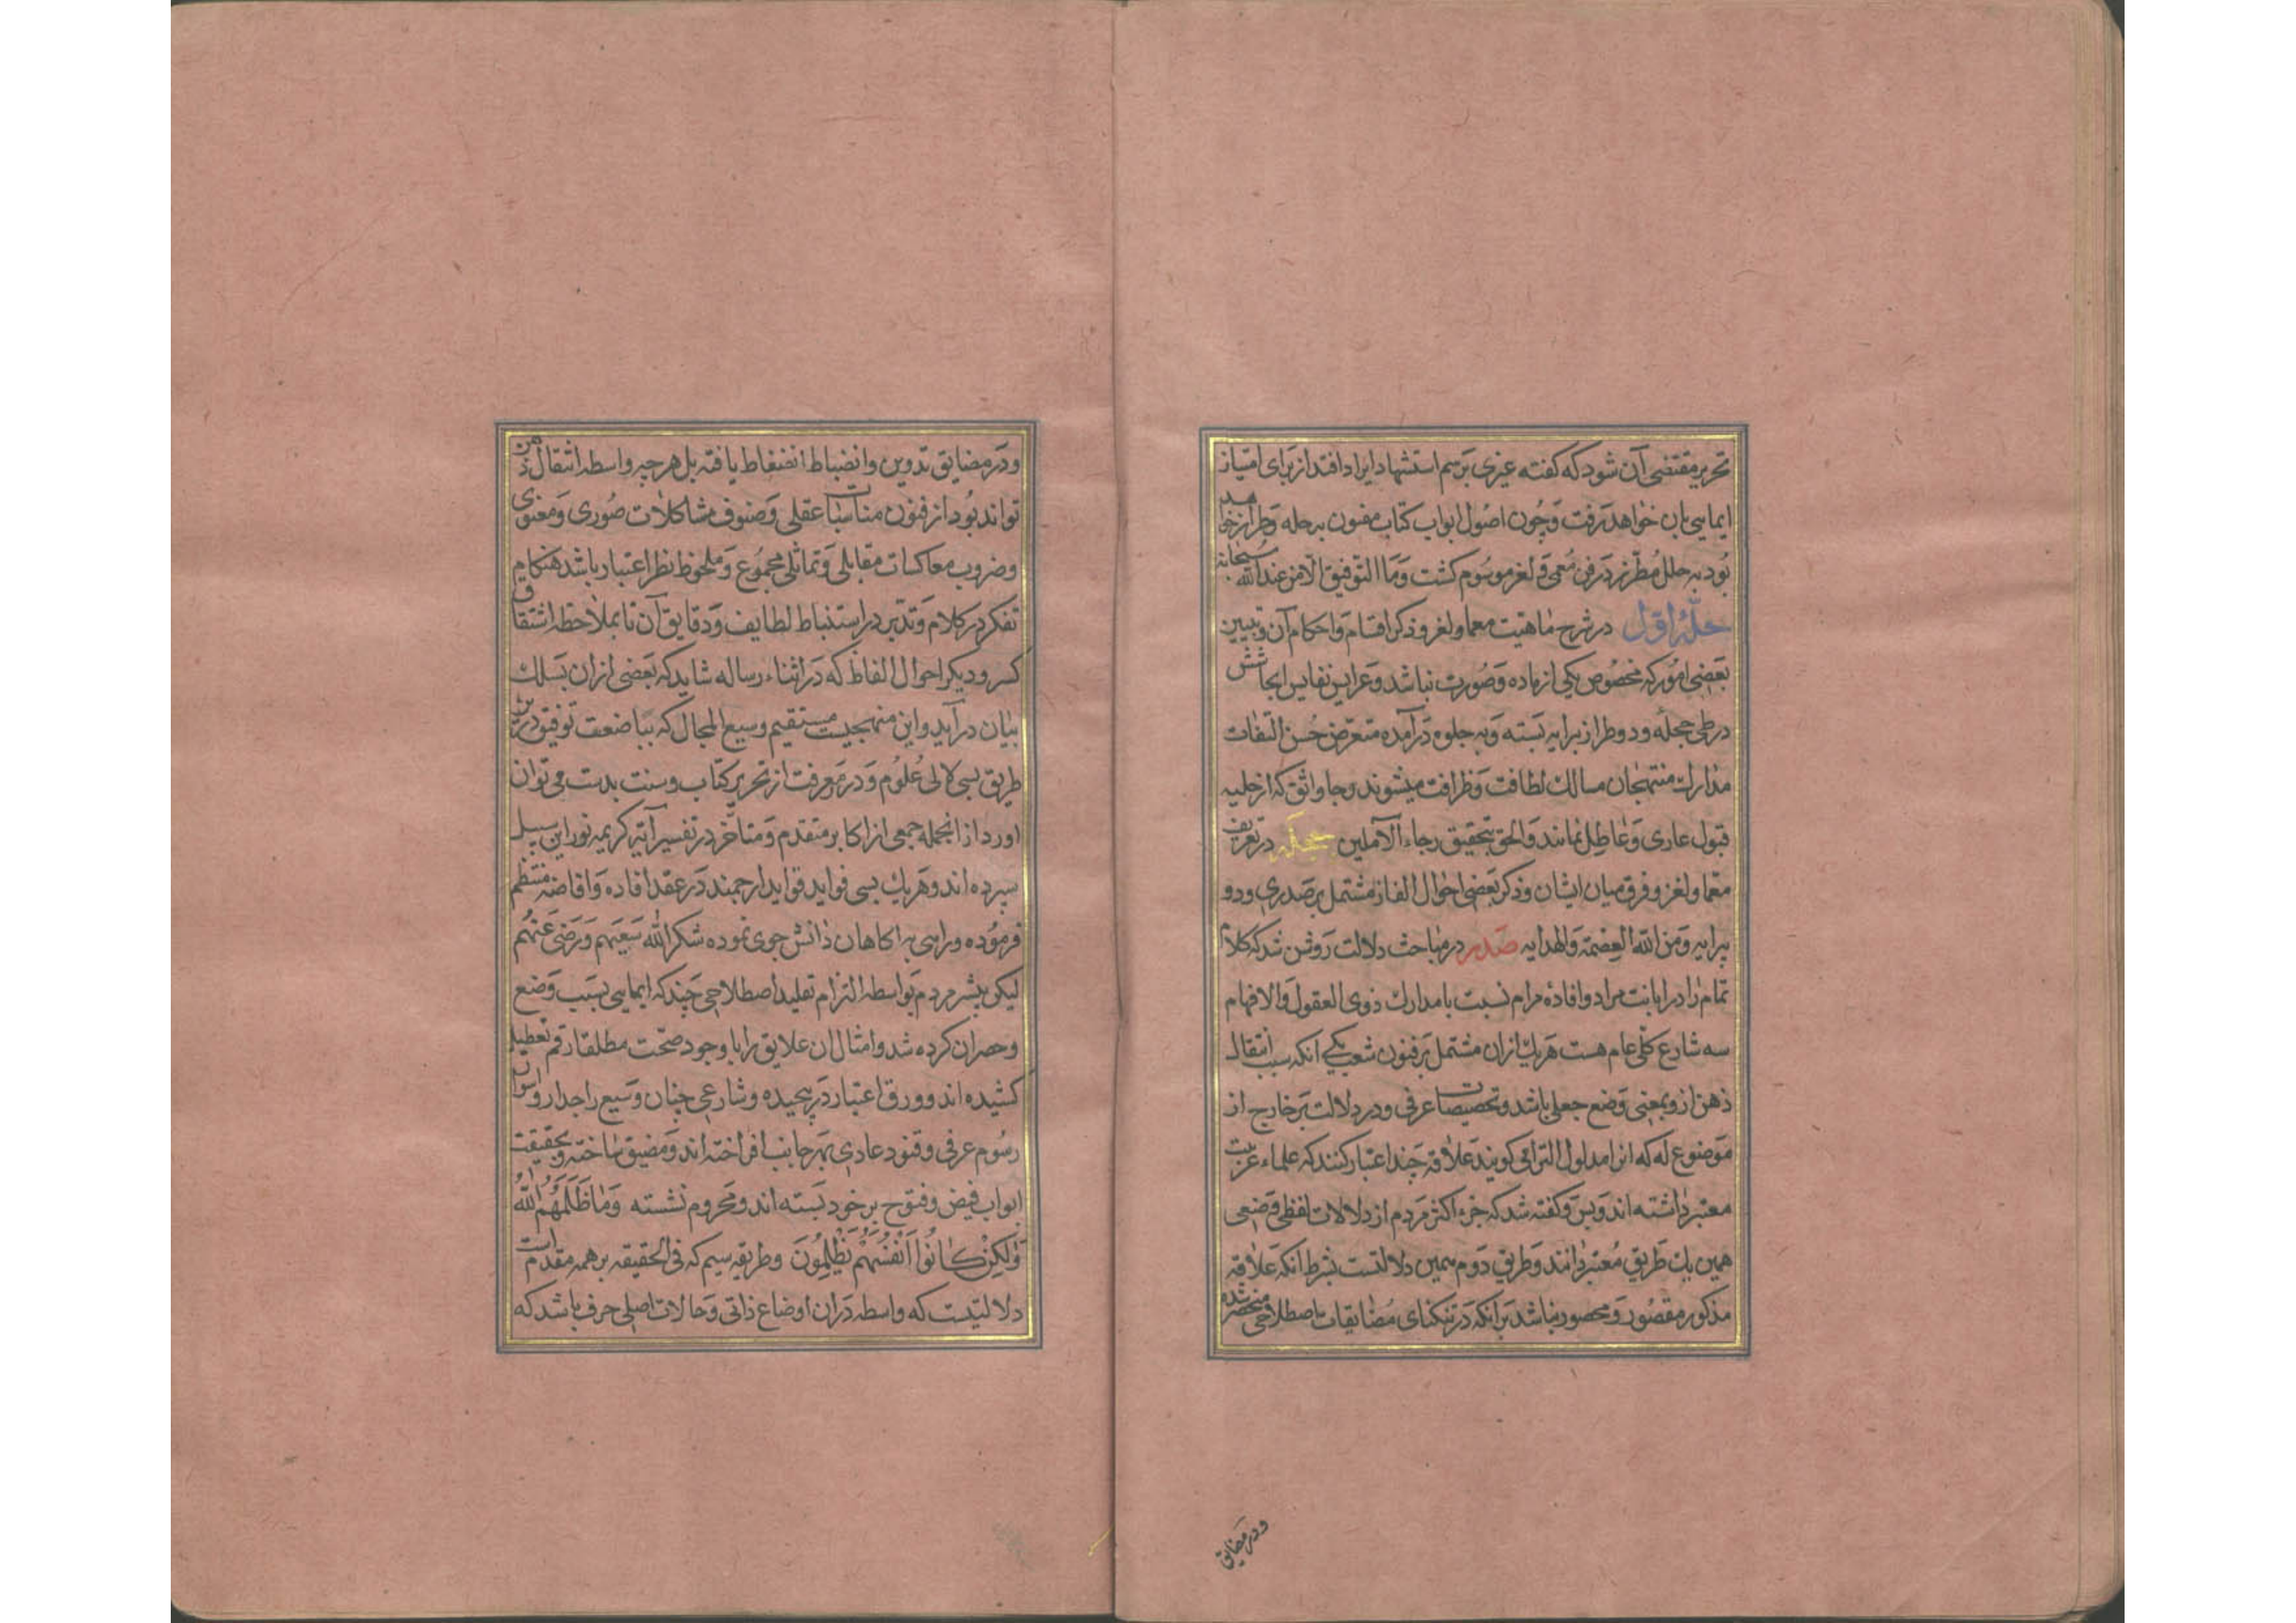 تحریر مقتضی آن شود که گفته غیری بر سم استشهاد ایراد افتد از برای امتیاز
ایمایی بان خواهد رفت و چون اصول ابواب کتاب مفنون به حله و طراز خواهد
بود به حلل مطرز در فن معمی و لغز موسوم کشت وما التوفیق الا من عند الله سبحانه
حلهٔ اول در شرح ماهیت معما و لغز و ذکر اقسام و احکام آن و تبیین
بعضی امور که مخصوص یکی از ماده و صورت نباشد و عرایس نفایس ابحاثش
در طی حجله و دو طراز برایه بسته و به جلوه درآمده متعرض حسن التفات
مدارک منتهجان مسالک لطافت و ظرافت میشوند و رجا واثق که از حلیه
قبول عاری و عاطل نمانند والحق بتحقیق رجاء الآملین حجله در تعریف
معما و لغز و فرق میان ایشان و ذکر بعضی احوال الفاظ مشتمل بر صدری و دو
پرایه ومن الله العصمة والهدایه صدر در مباحث دلالت روشن شد که کلام
تمام را در ابانت مراد و افادهٔ مرام نسبت با مدارک ذوی العقول والافهام
سه شارع کلّی عام هست هر یک ازان مشتمل بر فنون شعب یکی آنکه سبب انتقال
ذهن ازو بمعنی وضع جعلی باشد و تخصیصات عرفی و در دلالت بر خارج از
موضوع له که انرا مدلول التزامی کویند علاقه چند اعتبار کنند که علماء عربیت
معتبر داشته اند و بس و کفته شد که جزء اکثر مردم از دلالات لفظی وضعی
همین یک طریق معتبر دانند و طریق دوم همین دلالتست بشرط انکه علاقه
مذکور مقصور و محصور نباشد بر انکه در تنکنای مضایقات اصطلاحی منحصر شده
ودر مضایق
ودر مضایق تدوین و انضباط انضغاط یافته بل هر چه واسطه انتقال ذهن
تواند بود از فنون مناسبات عقلی و صنوف مشاکلات صوری و معنوی
وضروب معاکسات مقابلی و تماثلی مجموع و ملحوظ نظر اعتبار باشد هنکام
تفکر در کلام و تدبّر در استنباط لطایف و دقایق آن تا بملاحظه اشتقاق
کسر و دیکر احوال الفاظ که در اثناء رساله شاید که بعضی ازان بسلک
بیان درآید واین منهجیست مستقیم وسیع المجال که ببضاعت توفیق درین
طریق بسی لآلی علوم و در معرفت از تحریر کتاب و سنت بدست می توان
اورد از انجمله جمعی از اکابر متقدم و متأخر در تفسیر آیة کریمه نور این سبیل
سپرده اند و هر یک بسی فواید فواید ارجمند در عقد افاده و افاضه منتظم
فرموده وراهی به اکاهان دانش جوی نموده شکر الله سعیهم ورضی عنهم
لیکن بیشتر مردم بواسطه التزام تقلید اصطلاحی چند که ایمایی بسبب وضع
وحصر ان کرده شد وامثال ان علایق را با وجود صحّت مطلقا رقم تعطیل
کشیده اند و ورق اعتبار در پیچیده و شارعی چنان وسیع را جدار و سوار
رسوم عرفی و قنود عادی بهر جانب افراخته اند و مضیق ساخته و بحقیقت
ابواب فیض و فتوح بر خود بسته اند و محروم نشسته وَمَا ظَلَمَهُمُ اللّٰهُ
وَلٰكِنْ كَانُوا اَنْفُسَهُمْ يَظْلِمُونَ وطریقه سیم که فی الحقیقه بر همه مقدم است
دلالتیست که واسطه دران اوضاع ذاتی و حالات اصلی حرف باشد که